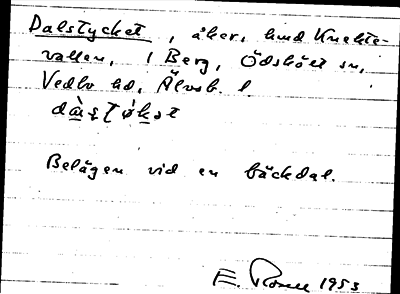 Dalstycket, åker, hmd Knekte-
vallen, i Berg, Ödskölt sn,
Vedbo hd, Älvsb. l.
Belägen vid en bäckdal.
E. Rosell 1953